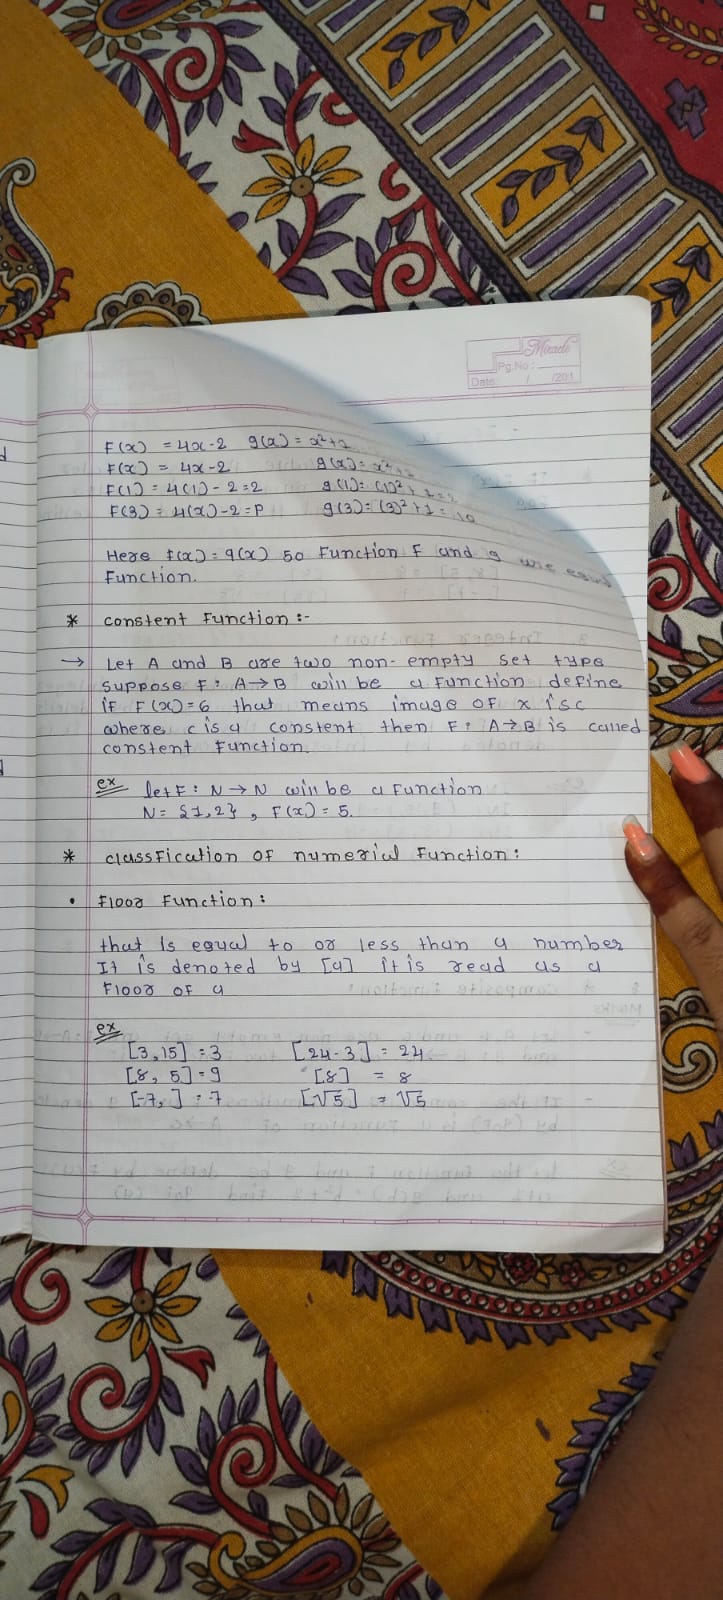 Miracle
Pg.No:
Date / /201
F(x) = 4x-2 g(x) = x²+1
F(x) = 4x-2 g(x) = x²+1
F(1) = 4(1) - 2 = 2 g(1) = (1)² + 1 = 2
F(3) = 4(x) - 2 = P g(3) = (3)² + 1 = 10
Here f(x) = g(x) so Function F and g are equal
Function.
* constent Function :-
→ Let A and B are two non-empty set type
suppose F: A→B will be a function define
if F(x)=6 that means image OF x is c
where c is a constent then F: A→B is called
constent Function.
ex let F: N → N will be a Function
N = {1,2}, F(x) = 5.
* classfication OF numerial Function:
• Floor Function:
that is equal to or less than a number
It is denoted by [a] it is read as a
Floor OF a
ex
[3,15] = 3 [24-3] = 24
[8, 5] = 9 [8] = 8
[-7, ] = -7 [√5] = √5